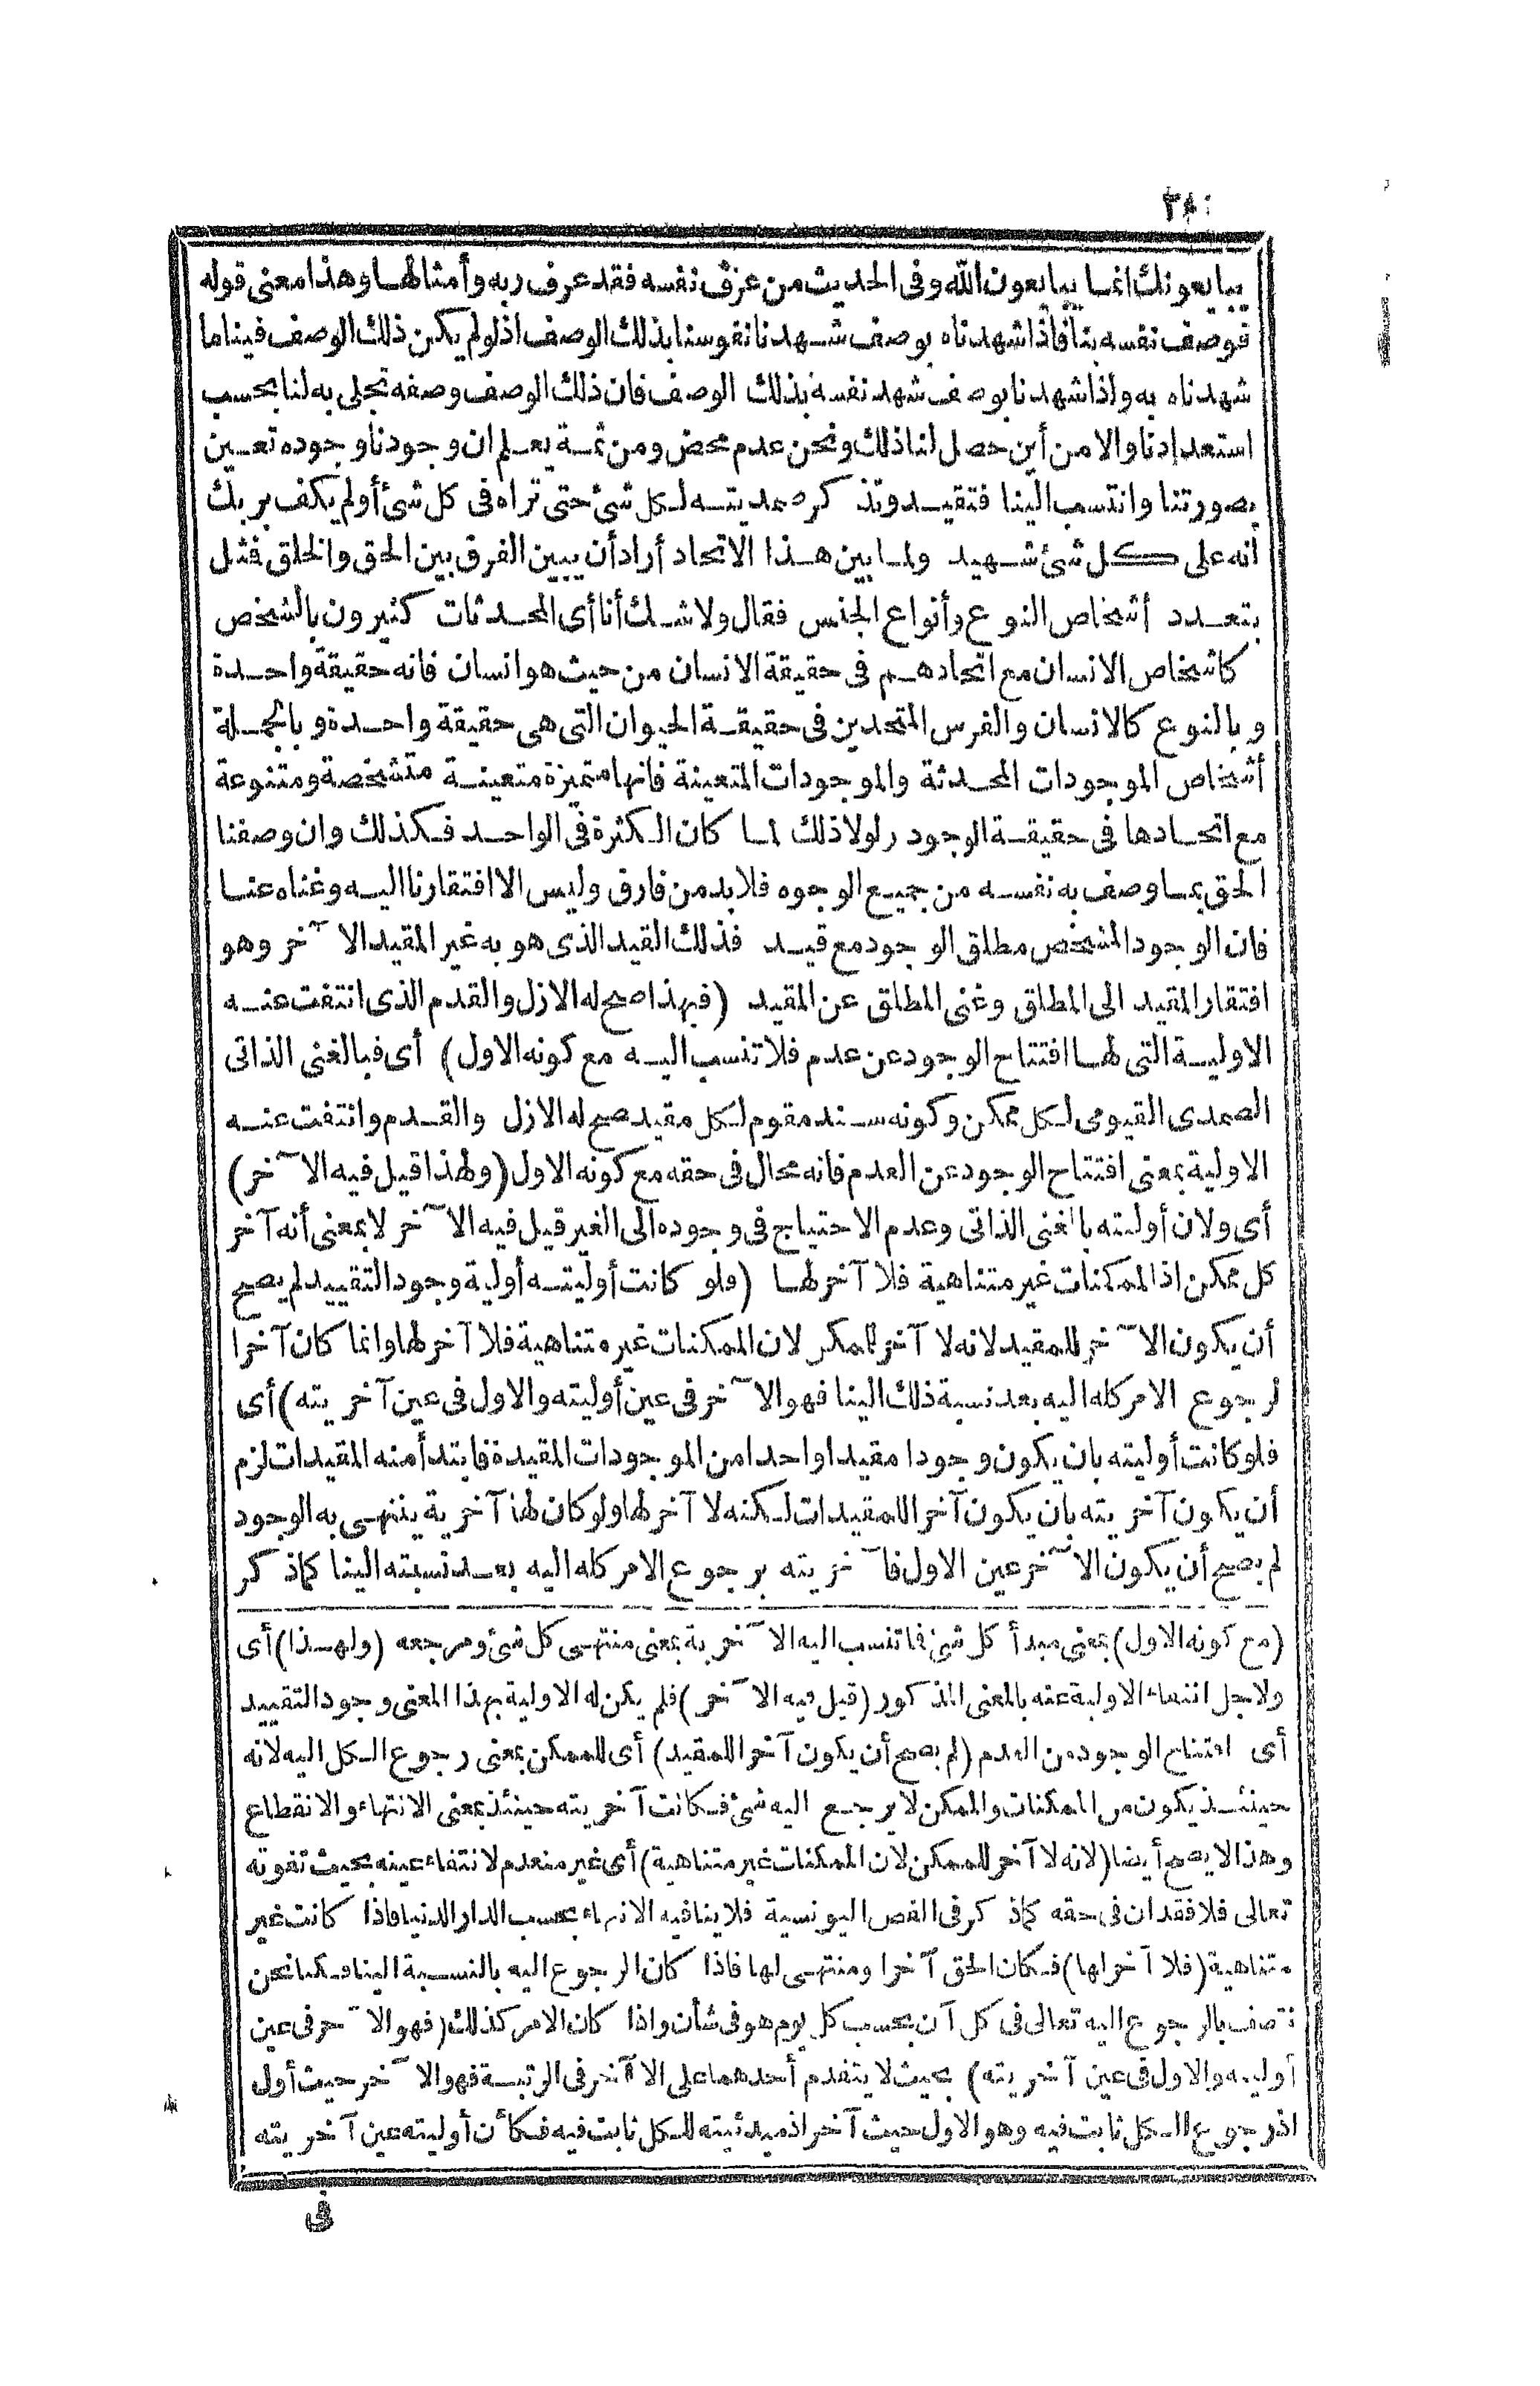 يبايعونك انما يبايعون الله وفى الحديث من عرف نفسه فقد عرف ربه وأمثالها وهذا معنى قوله
فوصف نفسه بنا فاذا شهدناه بوصف شهدنا نفوسنا بذلك الوصف اذ لو لم يكن ذلك الوصف فينا ما
شهدناه به واذا شهدنا بوصف شهد نفسه بذلك الوصف فان ذلك الوصف وصفه تجلى به لنا بحسب
استعدادنا والا من أين حصل لنا ذلك ونحن عدم محض ومن ثمة يعلم ان وجودنا وجوده تعين
بصورتنا وانتسب الينا فتقيد وتذكر صمديته لكل شئ حتى تراه فى كل شئ أولم يكف بربك
أنه على كل شئ شهيد ولما بين هذا الاتحاد أراد أن يبين الفرق بين الحق والخلق فمثل
بتعدد أشخاص النوع وأنواع الجنس فقال ولا شك أنا أى المحدثات كثيرون بالشخص
كاشخاص الانسان مع اتحادهم فى حقيقة الانسان من حيث هو انسان فانه حقيقة واحدة
وبالنوع كالانسان والفرس المتحدين فى حقيقة الحيوان التى هى حقيقة واحدة وبالجملة
أشخاص الموجودات المحدثة والموجودات المتعينة فانها متميزة متعينة متشخصة ومتنوعة
مع اتحادها فى حقيقة الوجود ولولا ذلك لما كان الكثرة فى الواحد فكذلك وان وصفنا
الحق بما وصف به نفسه من جميع الوجوه فلا بد من فارق وليس الا افتقارنا اليه وغناه عنا
فان الوجود المشخص مطلق الوجود مع قيد فذلك القيد الذى هو به غير المقيد الآخر وهو
افتقار المقيد الى المطلق وغنى المطلق عن المقيد (فبهذا صح له الازل والقدم الذى انتفت عنه
الاولية التى لها افتتاح الوجود عن عدم فلا تنسب اليه مع كونه الاول) أى فبالغنى الذاتى
الصمدى القيومى لكل ممكن وكونه سند مقوم لكل مقيد صح له الازل والقدم وانتفت عنه
الاولية بمعنى افتتاح الوجود عن العدم فانه محال فى حقه مع كونه الاول (ولهذا قيل فيه الآخر)
أى ولان أوليته بالغنى الذاتى وعدم الاحتياج فى وجوده الى الغير قيل فيه الآخر لا بمعنى أنه آخر
كل ممكن اذ الممكنات غير متناهية فلا آخر لها (ولو كانت أوليته أولية وجود التقييد لم يصح
أن يكون الآخر للمقيد لانه لا آخر للممكن لان الممكنات غير متناهية فلا آخر لها وانما كان آخرا
لرجوع الامر كله اليه بعد نسبة ذلك الينا فهو الآخر فى عين أوليته والاول فى عين آخريته) أى
فلو كانت أوليته بان يكون وجودا مقيدا واحدا من الموجودات المقيدة فابتدأ منه المقيدات لزم
أن يكون آخريته بان يكون آخرا للمقيدات لكنه لا آخر لها ولو كان لهذا آخرية ينتهى به الوجود
لم يصح أن يكون الآخر عين الاول فآخريته برجوع الامر كله اليه بعد نسبته الينا كما ذكر
(مع كونه الاول) بمعنى مبدأ كل شئ فا تنسب اليه الآخرية بمعنى منتهى كل شئ ومرجعه (ولهذا) أى
ولاجل انتفاء الاولية عنه بالمعنى المذكور (قيل فيه الآخر) فلم يكن له الاولية بهذا المعنى وجود التقييد
أى افتتاح الوجود من العدم (لم يصح أن يكون آخرا للمقيد) أى للممكن بمعنى رجوع الكل اليه لانه
حينئذ يكون من الممكنات والممكن لا يرجع اليه شئ فكانت آخريته حينئذ بمعنى الانتهاء والانقطاع
وهذا لا يصح أيضا (لانه لا آخر للممكن لان الممكنات غير متناهية) أى غير منعدم لانتفاء عينه بحيث تفوته
تعالى فلا فقدان فى حقه كما ذكر فى الفص اليونسية فلا ينافيه الانتهاء بحسب الدار الدنيا فاذا كانت غير
متناهية (فلا آخر لها) فكان الحق آخرا ومنتهى لها فاذا كان الرجوع اليه بالنسبة الينا فكما نحن
نتصف بالرجوع اليه تعالى فى كل آن بحسب كل يوم هو فى شأن واذا كان الامر كذلك (فهو الآخر فى عين
أوليته والاول فى عين آخريته) بحيث لا يتقدم أحدهما على الآخر فى الرتبة فهو الآخر حيث أول
اذ رجوع الكل ثابت فيه وهو الاول حيث آخر اذ مبدئيته للكل ثابت فيه فكأن أوليته عين آخريته
فى